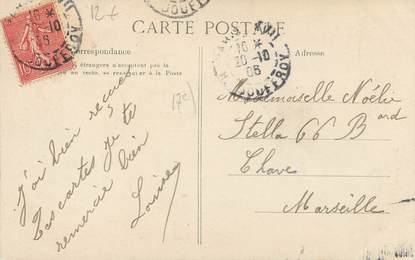 12 €
CARTE POSTALE
Correspondance
Adresse
étrangers n'acceptent pas la
au recto, se renseigner à la Poste
16 *
20-10
06
JOUFFROY
(17e)
J'ai bien recue
Tes cartes je te
remercie bien
Louise
Mademoiselle Noélie
Stella 66 Bard
Chave
Marseille